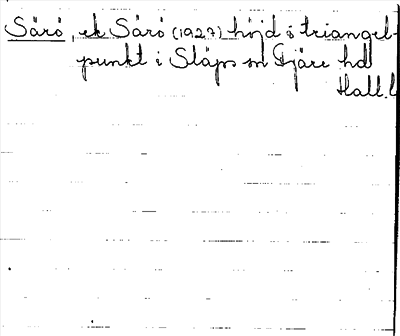 Särö, ek Särö (1927) höjd o triangel-
punkt i Släps sn Fjäre hd
Hall. l